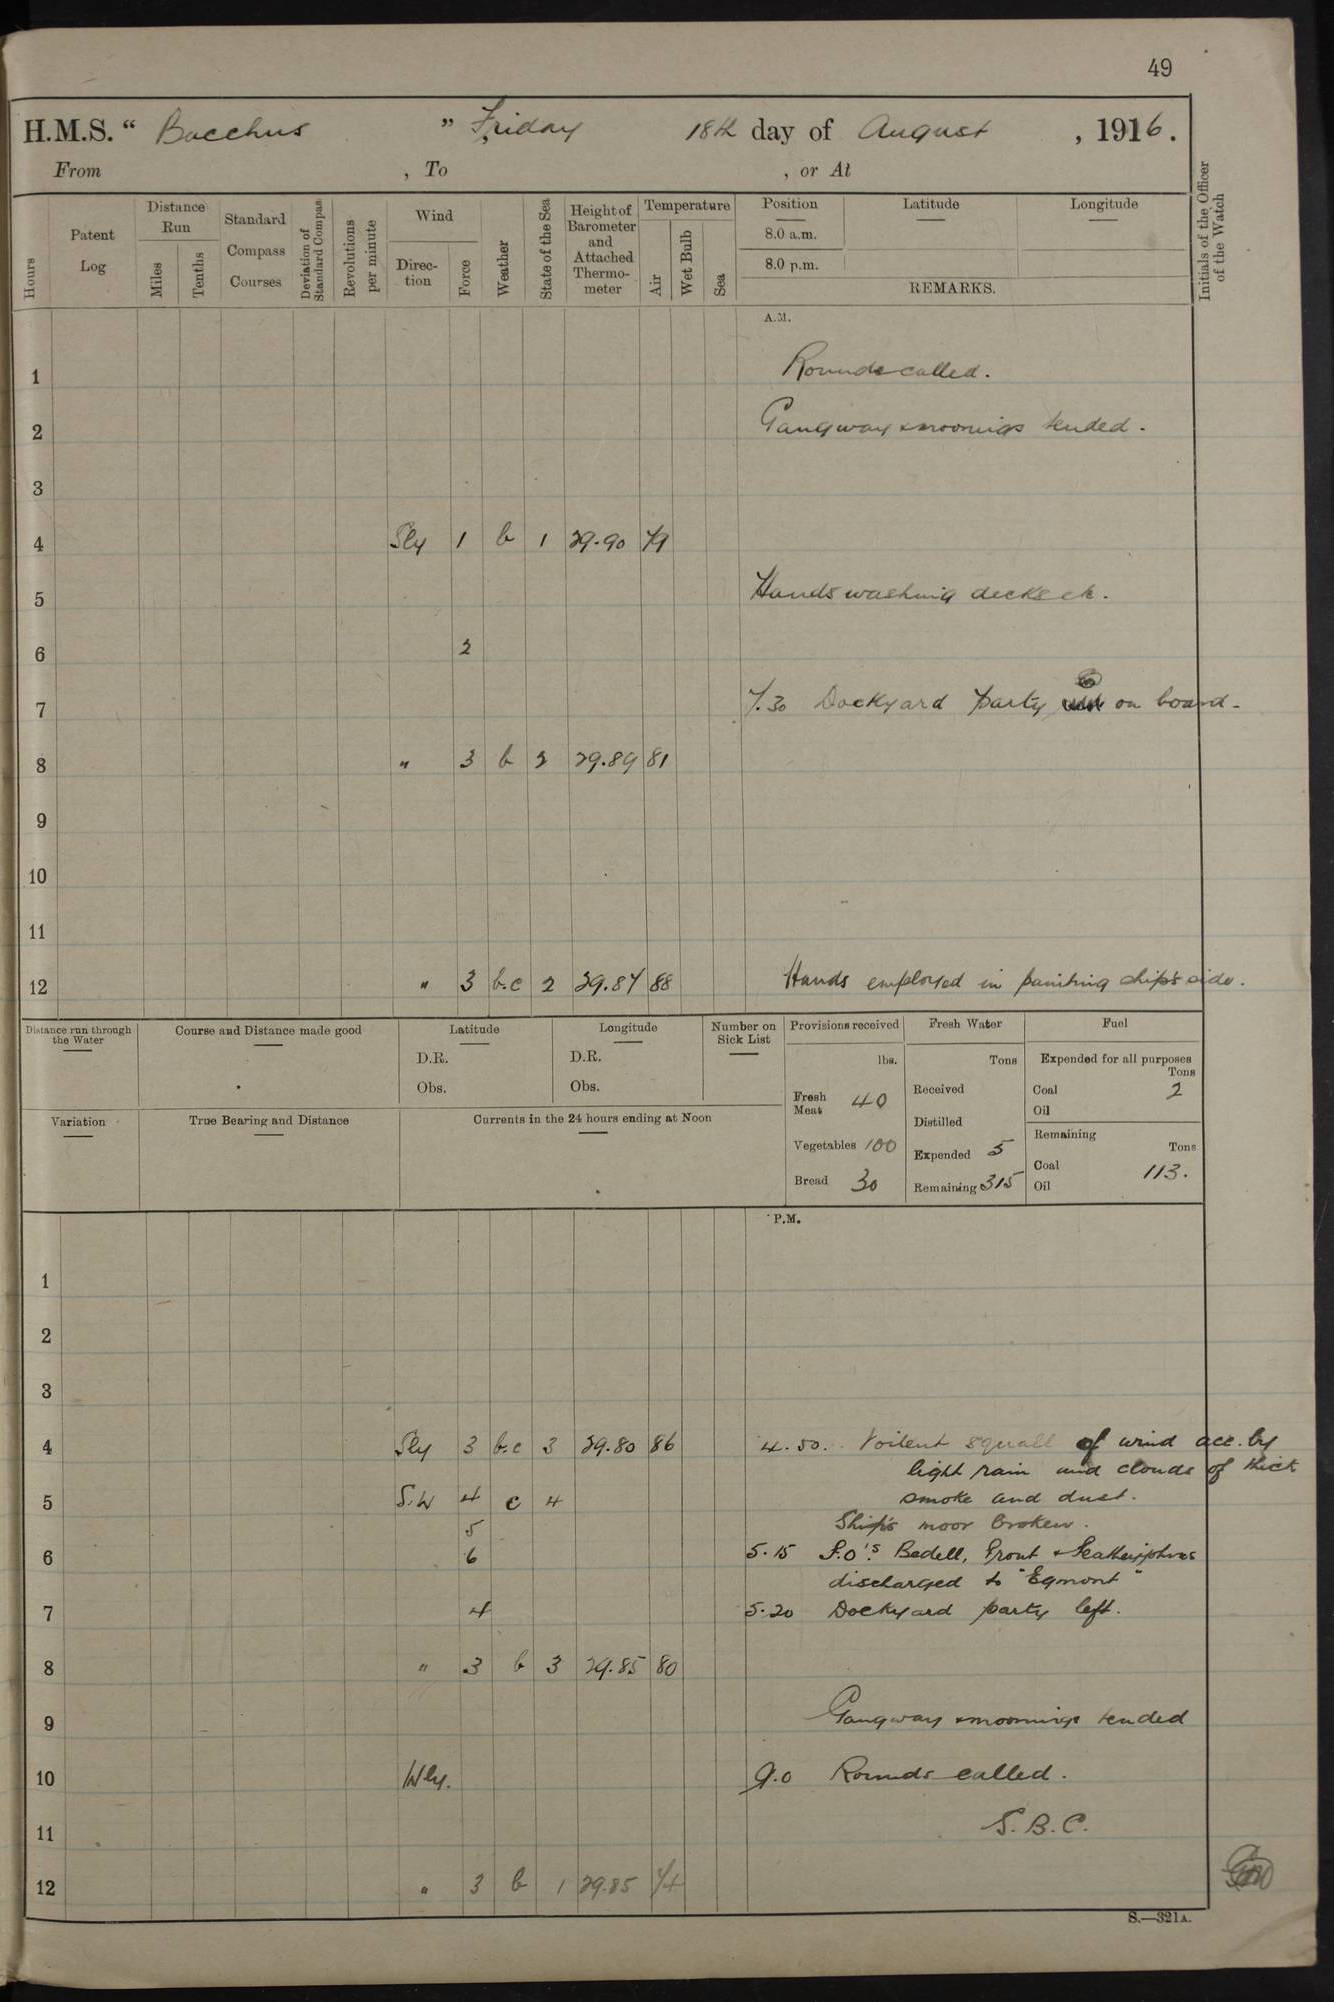 49
H.M.S. “ Bacchus ” Friday 18th day of August , 1916.
From , To , or At
Hours
Patent Log
Distance Run
Miles
Tenths
Standard Compass Courses
Deviation of Standard Compass
Revolutions per minute
Wind
Direction
Force
Weather
State of the Sea
Height of Barometer and Attached Thermometer
Temperature
Air
Wet Bulb
Sea
Position Latitude Longitude
8.0 a.m.
8.0 p.m.
REMARKS.
Initials of the Officer of the Watch
A.M.
1 Rounds called.
2 Gangway & moorings tended.
3
4 Sly 1 b 1 29.90 79
5 Hands washing decks etc.
6 2
7 7.30 Dockyard party on board.
8 " 3 b 2 29.89 81
9
10
11
12 " 3 b.c 2 29.87 88 Hands employed in painting ship's side.
Distance run through the Water
Course and Distance made good
Latitude
D.R.
Obs.
Longitude
D.R.
Obs.
Number on Sick List
Provisions received
lbs.
Fresh Meat 40
Vegetables 100
Bread 30
Fresh Water
Tons
Received
Distilled
Expended 5
Remaining 315
Fuel
Expended for all purposes
Tons
Coal 2
Oil
Remaining
Tons
Coal 113.
Oil
Variation
True Bearing and Distance
Currents in the 24 hours ending at Noon
P.M.
1
2
3
4 Sly 3 b.c 3 29.80 86 4.50. Voilent squall of wind acc. by
light rain and clouds of thick
5 S.W 4 c 4 smoke and dust.
5 Ship's moor broken.
6 6 5.15 S.O's. Bedell, Grout &
discharged to "Egmont"
7 4 5.20 Dockyard party left.
8 " 3 b 3 29.85 80
9 Gangway & moorings tended
10 Wly. 9.0 Rounds called.
11 S.B.C.
12 " 3 b 1 29.85 74
S.—321A.